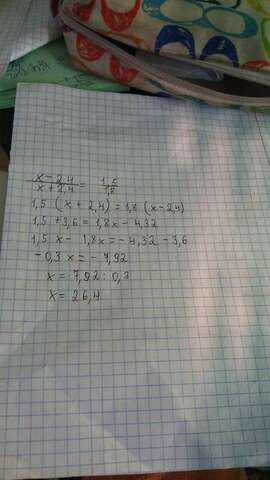 x-2,4/x+2,4 = 1,5/1,8
1,5 (x + 2,4) = 1,8 (x - 2,4)
1,5 + 3,6 = 1,8x - 4,32
1,5 x - 1,8x = - 4,32 - 3,6
-0,3 x = - 7,92
x = 7,92 : 0,3
x = 26,4